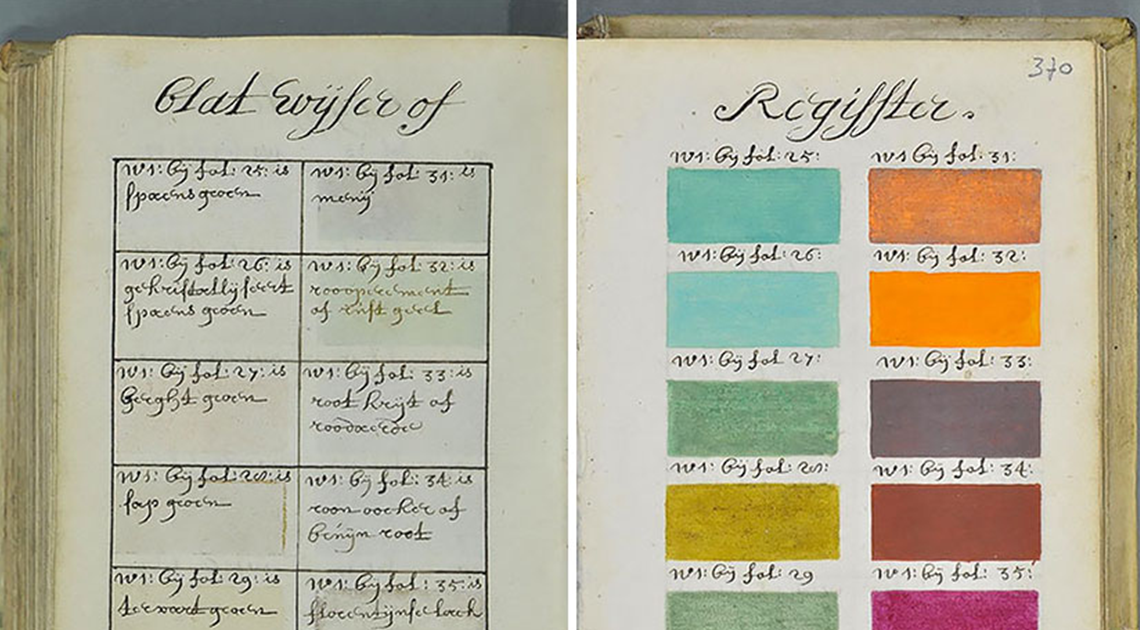 Blat Wÿser of
N1: bÿ fol: 25: is
spaens groen
N1: bÿ fol: 31: is
menÿ
N1: bÿ fol: 26: is
gekristallÿseert
spaens groen
N1: bÿ fol: 32: is
of rüst geel
N1: bÿ fol: 27: is
berght groen
N1: bÿ fol: 33: is
root krÿt of
roodaerde
N1: bÿ fol: 28: is
sap groen
N1: bÿ fol: 34: is
roon oocker of
root
N1: bÿ fol: 29: is
groen
N1: bÿ fol: 35: is
florentÿnse lack
370
Regisster.
N1: bÿ fol: 25:
N1: bÿ fol: 31:
N1: bÿ fol: 26:
N1: bÿ fol: 32:
N1: bÿ fol: 27:
N1: bÿ fol: 33:
N1: bÿ fol: 28:
N1: bÿ fol: 34:
N1: bÿ fol: 29
N1: bÿ fol: 35: